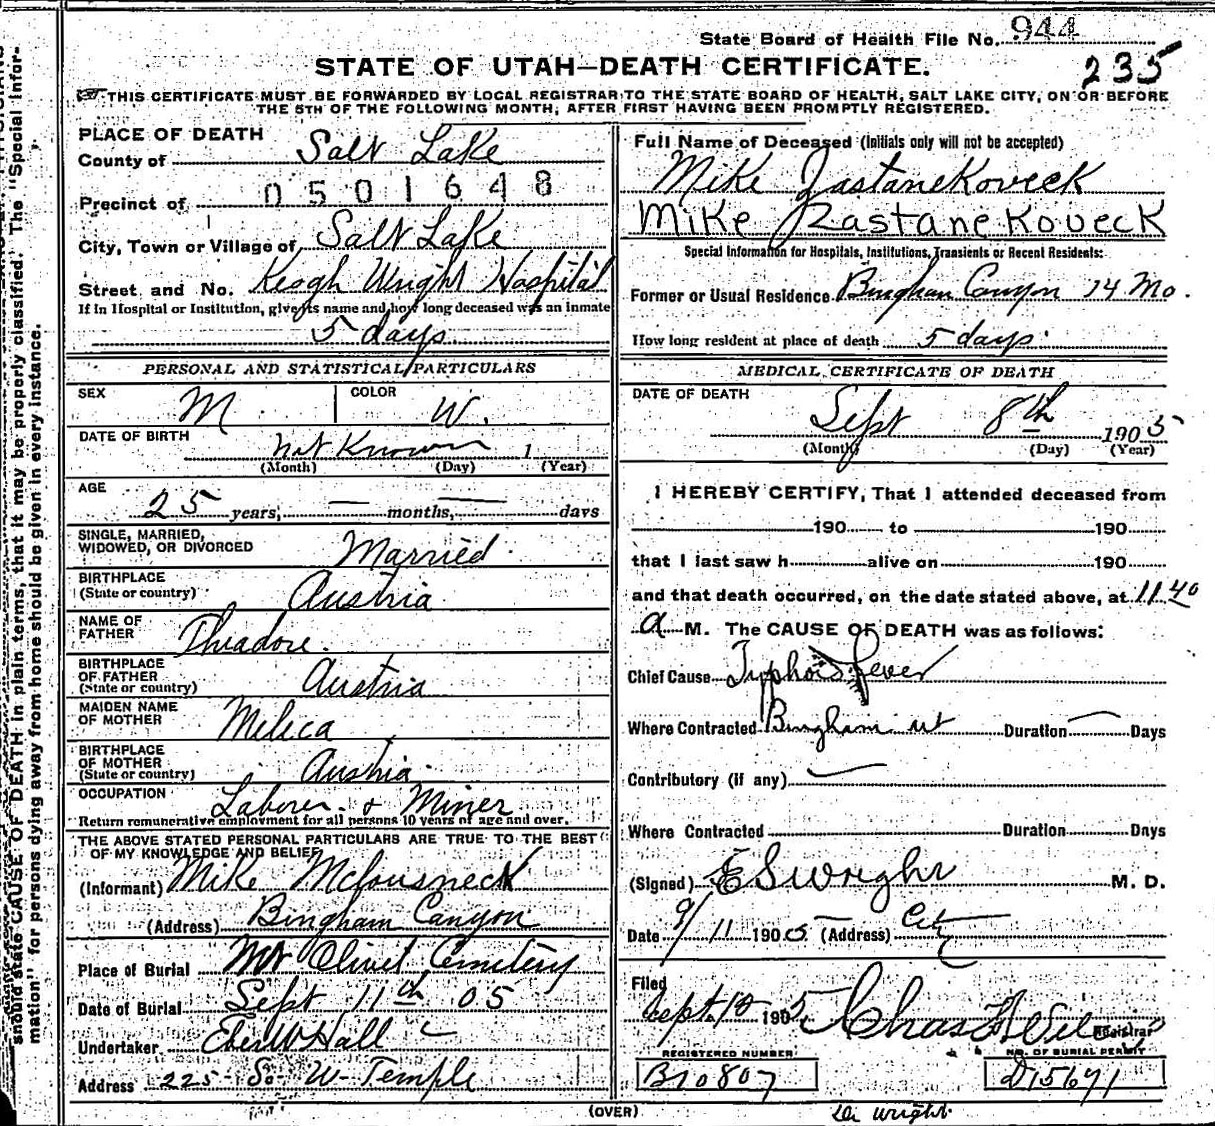 State Board of Health File No. 944
STATE OF UTAH—DEATH CERTIFICATE.
235
THIS CERTIFICATE MUST BE FORWARDED BY LOCAL REGISTRAR TO THE STATE BOARD OF HEALTH, SALT LAKE CITY, ON OR BEFORE
THE 5TH OF THE FOLLOWING MONTH, AFTER FIRST HAVING BEEN PROMPTLY REGISTERED.
PLACE OF DEATH
County of Salt Lake
0501648
Precinct of
City, Town or Village of Salt Lake
Street and No. Keogh Wright Hospital
If in Hospital or Institution, give its name and how long deceased was an inmate
5 days
PERSONAL AND STATISTICAL PARTICULARS
SEX M. COLOR W.
DATE OF BIRTH not Known 1
(Month) (Day) (Year)
AGE
25 years, — months, — days
SINGLE, MARRIED,
WIDOWED, OR DIVORCED Married.
BIRTHPLACE
(State or country) Austria
NAME OF
FATHER Theadore.
BIRTHPLACE
OF FATHER
(State or country) Austria
MAIDEN NAME
OF MOTHER Melica
BIRTHPLACE
OF MOTHER
(State or country) Austria.
OCCUPATION Laborer & Miner
Return remunerative employment for all persons 10 years of age and over.
THE ABOVE STATED PERSONAL PARTICULARS ARE TRUE TO THE BEST
OF MY KNOWLEDGE AND BELIEF
(Informant) Mike
(Address) Bingham Canyon
Place of Burial Mt Olivet Cemetery
Date of Burial Sept 11th 05
Undertaker Eber W Hall
Address 225 So W Temple
Full Name of Deceased (Initials only will not be accepted)
Mike Jastanekoveck
Mike Rastanekoveck
Special Information for Hospitals, Institutions, Transients or Recent Residents:
Former or Usual Residence Bingham Canyon 14 Mo.
How long resident at place of death 5 days.
MEDICAL CERTIFICATE OF DEATH
DATE OF DEATH
Sept 8th 1905
(Month) (Day) (Year)
I HEREBY CERTIFY, That I attended deceased from
190 to 190
that I last saw h alive on 190
and that death occurred, on the date stated above, at 11.40
a M. The CAUSE OF DEATH was as follows:
Chief Cause Typhoid fever
Where Contracted Bingham Ut Duration — Days
Contributory (if any)
Where Contracted Duration Days
(Signed) E S Wright M. D.
Date 9/11 1905 (Address) City
Filed
Sept. 1905 Chas
Registrar
REGISTERED NUMBER
B10807
NO. OF BURIAL PERMIT
D15671
(OVER)
Dr Wright
should state CAUSE OF DEATH in plain terms, that it may be properly classified. The "Special Infor-
mation" for persons dying away from home should be given in every instance.